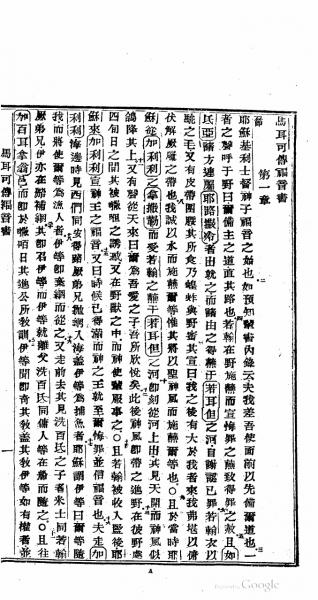 馬耳可傳福音書
第一章
節
耶穌基利士督神子福音之始也如預知輩書內錄云夫我差吾使面前以先備爾道也一
者之聲呼于野曰爾備主之道直其路也若翰在野施蘸而宣悔罪之蘸致得罪之赦且如
氐亞諸方連屬耶路撒冷者出就之而諸由之得蘸于若耳但之河自謝認己罪若翰衣以
駝之毛又有皮帶圍腰其所食乃蝗蟲與野蜜其宣曰我之後有大於我者來我弗堪以俯
伏解厥履之帶也我誠以水而施蘸爾等惟其將以聖神風而施蘸爾等也〇且於當時耶
穌從加利利之拿撒勒而受若翰之蘸于若耳但之河卽刻從河上出其見天開而神風似
鴿降其上又有聲從天來曰爲吾愛之子吾所欣悅矣此後神風卽帶之進野在彼野處
四旬日之間其被之誘惑又在野獸之中而神使輩服事之〇且若翰被收入監後耶
穌來加利利宣神王之福音又曰時候已得滿而神之王就至爾悔罪並信福音也夫走加
利利海邊時見西們同安得路厥弟兄拋網入海蓋伊等爲捕魚者耶穌謂伊等曰爾等隨
我而將使爾等爲漁人者伊等卽棄網而從之又走前去其見洗百氐之子者米士同若翰
厥弟兄伊亦在船補網其卽召伊等而伊等就離父洗百氐同傭人等在船而隨之〇且往
加百耳拿翁邑而卽於日其進公所教訓伊等聞卽奇其教蓋其教伊等如有權者並
馬耳可傳福音書
一
Google